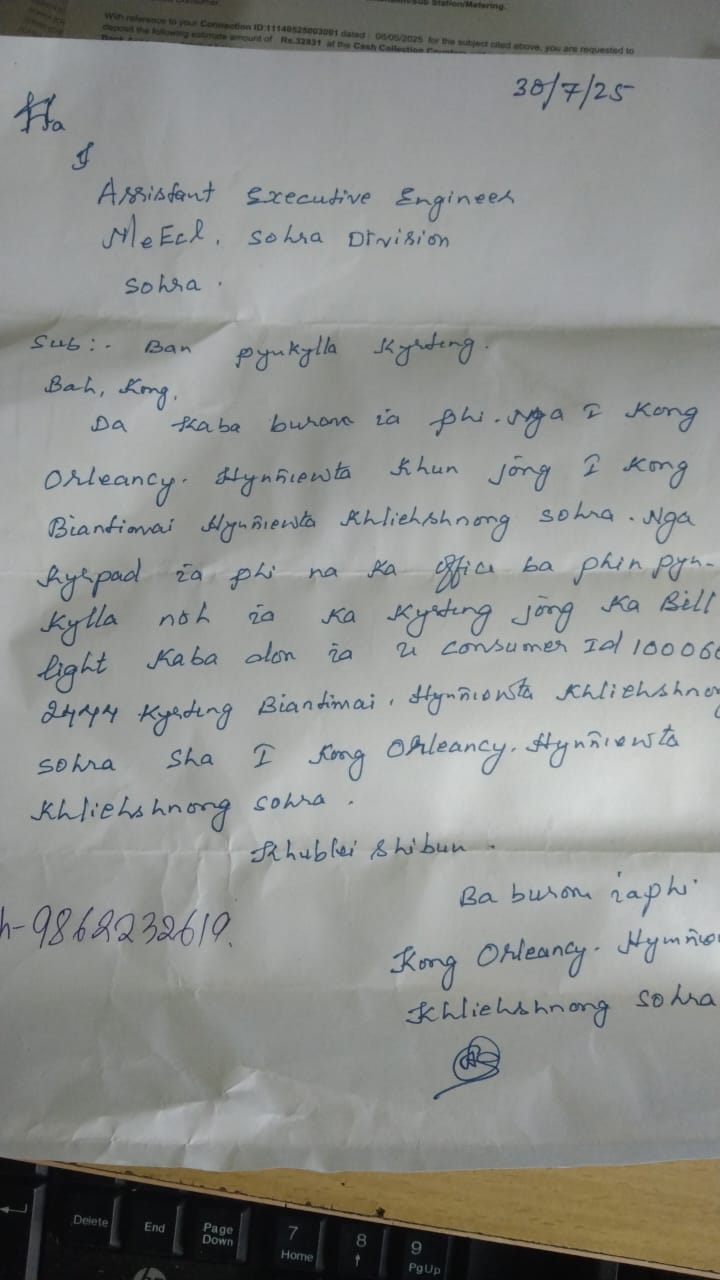 Sub Station/Metering.
With reference to your Connection ID:11140525003001 dated : 05/05/2025 for the subject cited above, you are requested to
deposit the following estimate amount of Rs.32831 at the Cash Collection
30/7/25
Ha
I
Assistant Executive Engineer
MeEcl, Sohra Division
Sohra.
Sub:- Ban pynkylla Kyrteng.
Bah, Kong,
Da Kaba burom ia phi. Nga I Kong
Orleancy. Hynñiewta Khun jong I Kong
Biantimai Hynñiewta Khliehshnong Sohra. Nga
kyrpad ia phi na ka office ba phin pyn-
kylla noh ia ka Kyrteng jong Ka Bill
light Kaba don ia u consumer Id 10006
2444 Kyrteng Biantimai, Hynñiewta Khliehshno
Sohra Sha I Kong Orleancy. Hynñiewta
Khliehshnong Sohra.
Khublei shibun.
Ba burom iaphi
h-9862232619.
Kong Orleancy. Hymñie
Khliehshnong Sohra
Delete
End
Page Down
7 Home
8
9 PgUp
hp